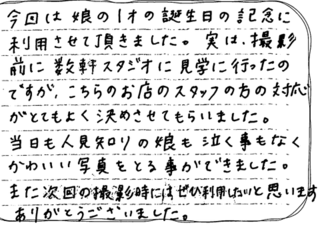 今回は娘の1才の誕生日の記念に
利用させて頂きました。実は、撮影
前に数軒スタジオに見学に行ったの
ですが、こちらのお店のスタッフの方の対応
がとてもよく決めさせてもらいました。
当日も人見知りの娘も泣く事もなく
かわいい写真をとる事ができました。
また次回の撮影時にはぜひ利用したいと思います
ありがとうございました。